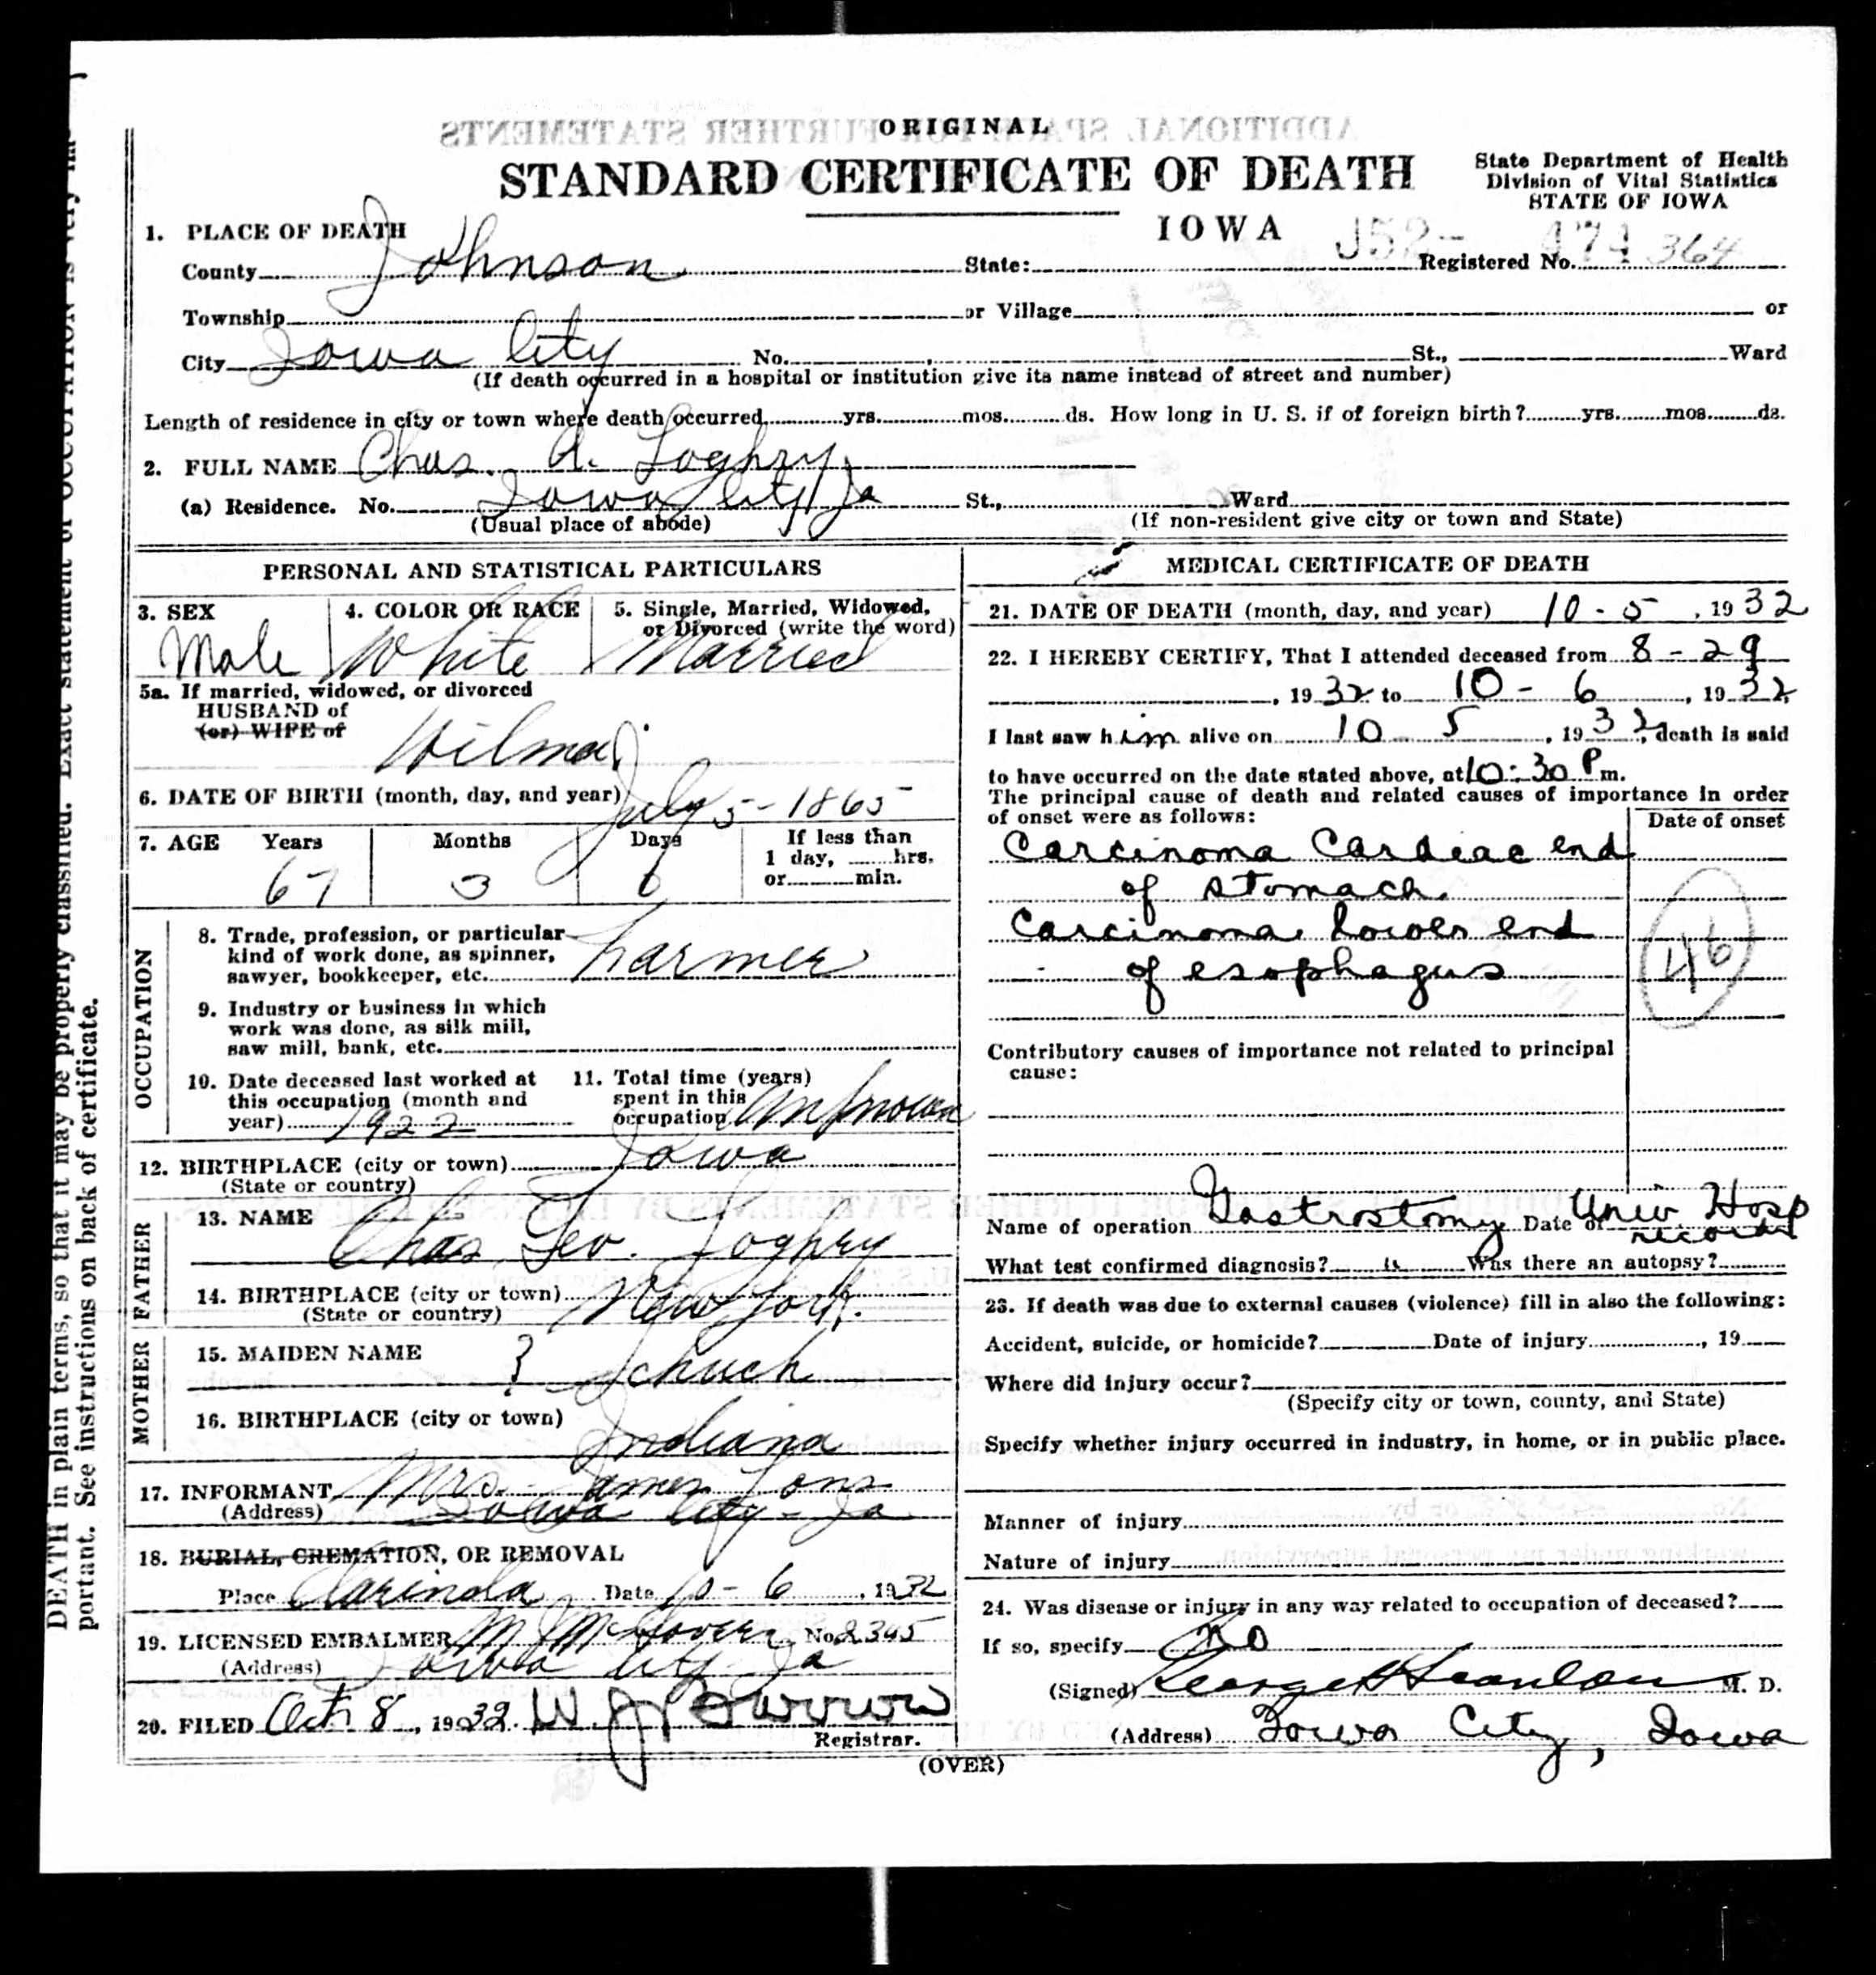 ORIGINAL
STANDARD CERTIFICATE OF DEATH
State Department of Health
Division of Vital Statistics
STATE OF IOWA
IOWA
J52- 474 364
1. PLACE OF DEATH
County Johnson State: Registered No.
Township or Village or
City Iowa City No. St., Ward
(If death occurred in a hospital or institution give its name instead of street and number)
Length of residence in city or town where death occurred yrs. mos. ds. How long in U. S. if of foreign birth? yrs. mos. ds.
2. FULL NAME Chas. A. Loghry
(a) Residence. No. Iowa City Ia St., Ward
(Usual place of abode) (If non-resident give city or town and State)
PERSONAL AND STATISTICAL PARTICULARS
3. SEX 4. COLOR OR RACE 5. Single, Married, Widowed,
or Divorced (write the word)
Male White Married
5a. If married, widowed, or divorced
HUSBAND of
(or) WIFE of
Wilma
6. DATE OF BIRTH (month, day, and year) July 5-1865
7. AGE Years Months Days If less than
1 day, hrs.
or min.
67 3 0
OCCUPATION
8. Trade, profession, or particular
kind of work done, as spinner,
sawyer, bookkeeper, etc. Farmer
9. Industry or business in which
work was done, as silk mill,
saw mill, bank, etc.
10. Date deceased last worked at
this occupation (month and
year) 1922
11. Total time (years)
spent in this
occupation Unknown
12. BIRTHPLACE (city or town) Iowa
(State or country)
FATHER
13. NAME Chas Geo. Loghry
14. BIRTHPLACE (city or town) New York.
(State or country)
MOTHER
15. MAIDEN NAME ? Schuch
16. BIRTHPLACE (city or town)
Indiana
17. INFORMANT Mrs. James Lons
(Address) Iowa City - Ia
18. BURIAL, CREMATION, OR REMOVAL
Place Clarinda Date 10-6, 1932
19. LICENSED EMBALMER M J McGovern No. 2345
(Address) Iowa City Ia
20. FILED Oct 8, 1932. W J Barrow
Registrar.
MEDICAL CERTIFICATE OF DEATH
21. DATE OF DEATH (month, day, and year) 10-5, 1932
22. I HEREBY CERTIFY, That I attended deceased from 8-29
, 1932 to 10-6, 1932
I last saw him alive on 10 5, 1932, death is said
to have occurred on the date stated above, at 10:30 P m.
The principal cause of death and related causes of importance in order
of onset were as follows:
Date of onset
Carcinoma Cardiac end
of stomach.
Carcinoma lower end
of esophagus
46
Contributory causes of importance not related to principal
cause:
Name of operation Gastrostomy Date of Univ Hosp
records
What test confirmed diagnosis? Was there an autopsy?
23. If death was due to external causes (violence) fill in also the following:
Accident, suicide, or homicide? Date of injury , 19
Where did injury occur?
(Specify city or town, county, and State)
Specify whether injury occurred in industry, in home, or in public place.
Manner of injury
Nature of injury
24. Was disease or injury in any way related to occupation of deceased?
If so, specify No
(Signed) George H Scanlon M. D.
(Address) Iowa City, Iowa
(OVER)
DEATH in plain terms, so that it may be properly classified. Exact statement of OCCUPATION is very im-
portant. See instructions on back of certificate.